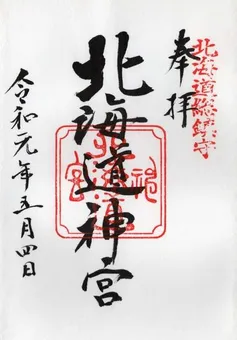 北海道総鎮守
奉拝
北海道神宮
令和元年五月四日